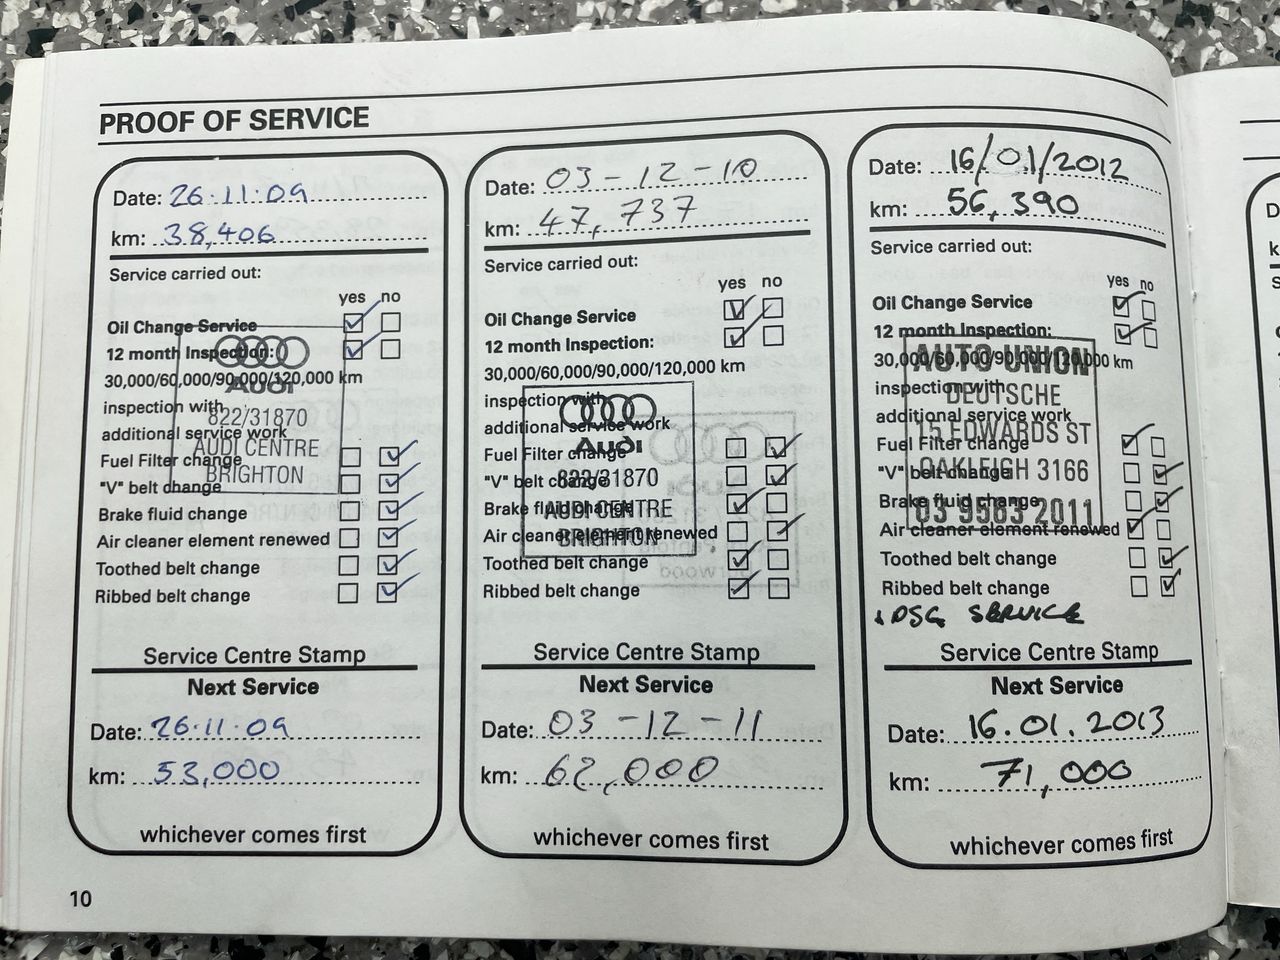 PROOF OF SERVICE
Date: 26.11.09
km: 38,406
Service carried out:
yes no
Oil Change Service
12 month Inspection:
30,000/60,000/90,000/120,000 km
inspection with
additional service work
Fuel Filter change
"V" belt change
Brake fluid change
Air cleaner element renewed
Toothed belt change
Ribbed belt change
Audi
822/31870
AUDI CENTRE
BRIGHTON
Service Centre Stamp
Next Service
Date: 26.11.09
km: 53,000
whichever comes first
Date: 03-12-10
km: 47,737
Service carried out:
yes no
Oil Change Service
12 month Inspection:
30,000/60,000/90,000/120,000 km
inspection with
additional service work
Fuel Filter change
"V" belt change
Brake fluid change
Air cleaner element renewed
Toothed belt change
Ribbed belt change
Audi
822/31870
AUDI CENTRE
BRIGHTON
Service Centre Stamp
Next Service
Date: 03-12-11
km: 62,000
whichever comes first
Date: 16/01/2012
km: 56,390
Service carried out:
yes no
Oil Change Service
12 month Inspection:
30,000/60,000/90,000/120,000 km
inspection with
additional service work
Fuel Filter change
"V" belt change
Brake fluid change
Air cleaner element renewed
Toothed belt change
Ribbed belt change
AUTO UNION
DEUTSCHE
15 EDWARDS ST
OAKLEIGH 3166
03 9563 2011
DSG SERVICE
Service Centre Stamp
Next Service
Date: 16.01.2013
km: 71,000
whichever comes first
10